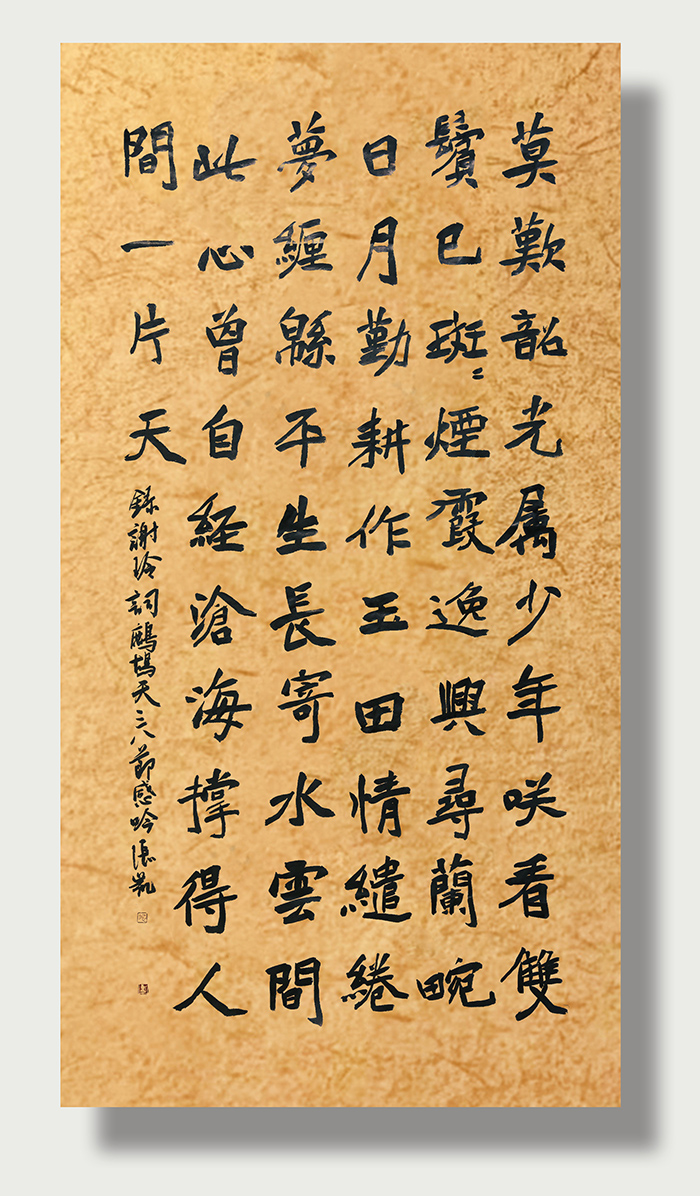 莫歎韶光属少年咲看雙
鬢已斑〻煙霞逸興尋蘭畹
日月勤耕作玉田情繾綣
夢纏緜平生長寄水雲間
此心曾自経滄海撑得人
間一片天
錄謝玲詞鷓鴣天三八節感吟